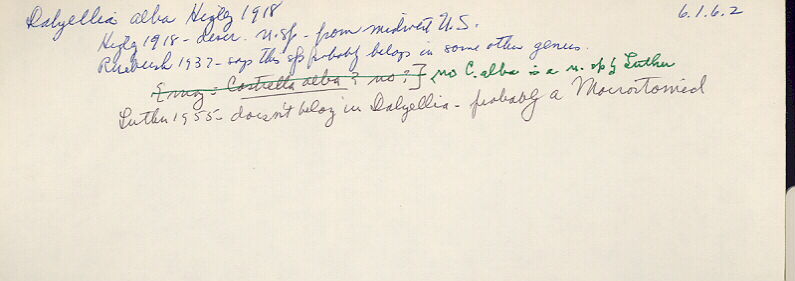 Dalyellia alba Higley 1918 6.1.6.2
Higley 1918 - descr. n.sp. from midwest U.S.
Ruebush 1937 - says this sp probably belongs in some other genus.
= Castrella alba? no?] no C. alba is a n. sp of Luther
Luther 1955 - doesn't belong in Dalyellia - probably a Macrostomid